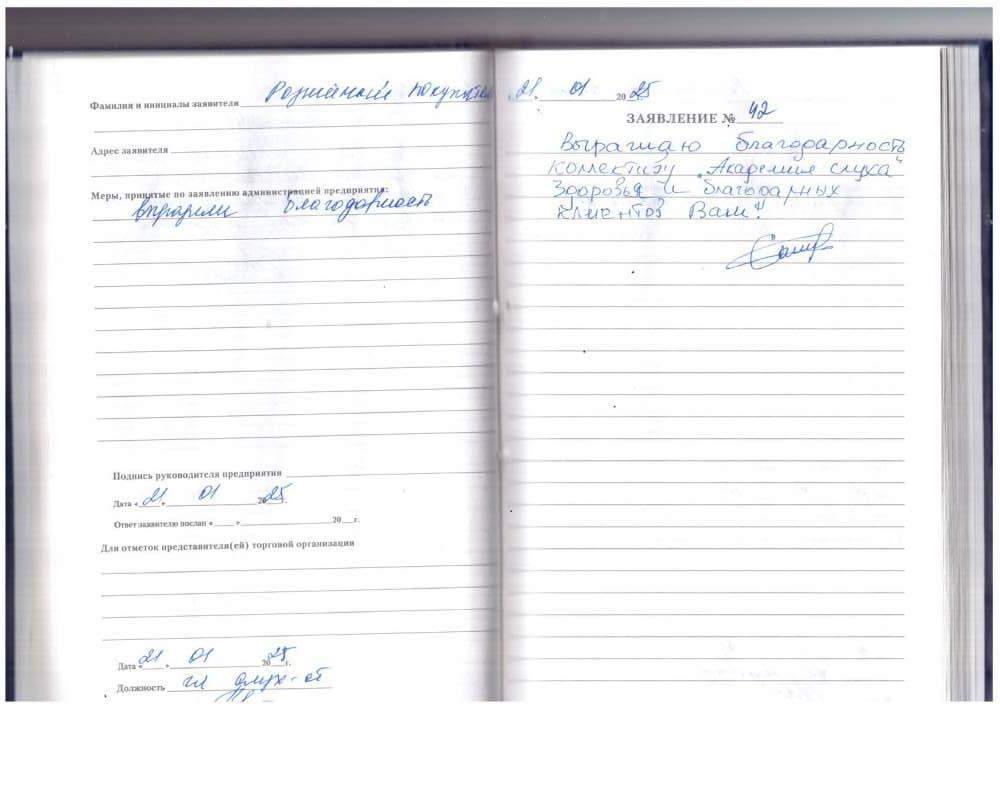 Фамилия и инициалы заявителя покупатель
Адрес заявителя
Меры, принятые по заявлению администрацией предприятия:
выразили благодарность
Подпись руководителя предприятия
Дата «21» 01 2025 г.
Ответ заявителю послан « » 20 г.
Для отметок представителя(ей) торговой организации
Дата «21» 01 2025 г.
Должность гл
21 01 2025
ЗАЯВЛЕНИЕ № 42
Выражаю благодарность
коллективу „Академия слуха“
Здоровья и благодарных
клиентов Вам!